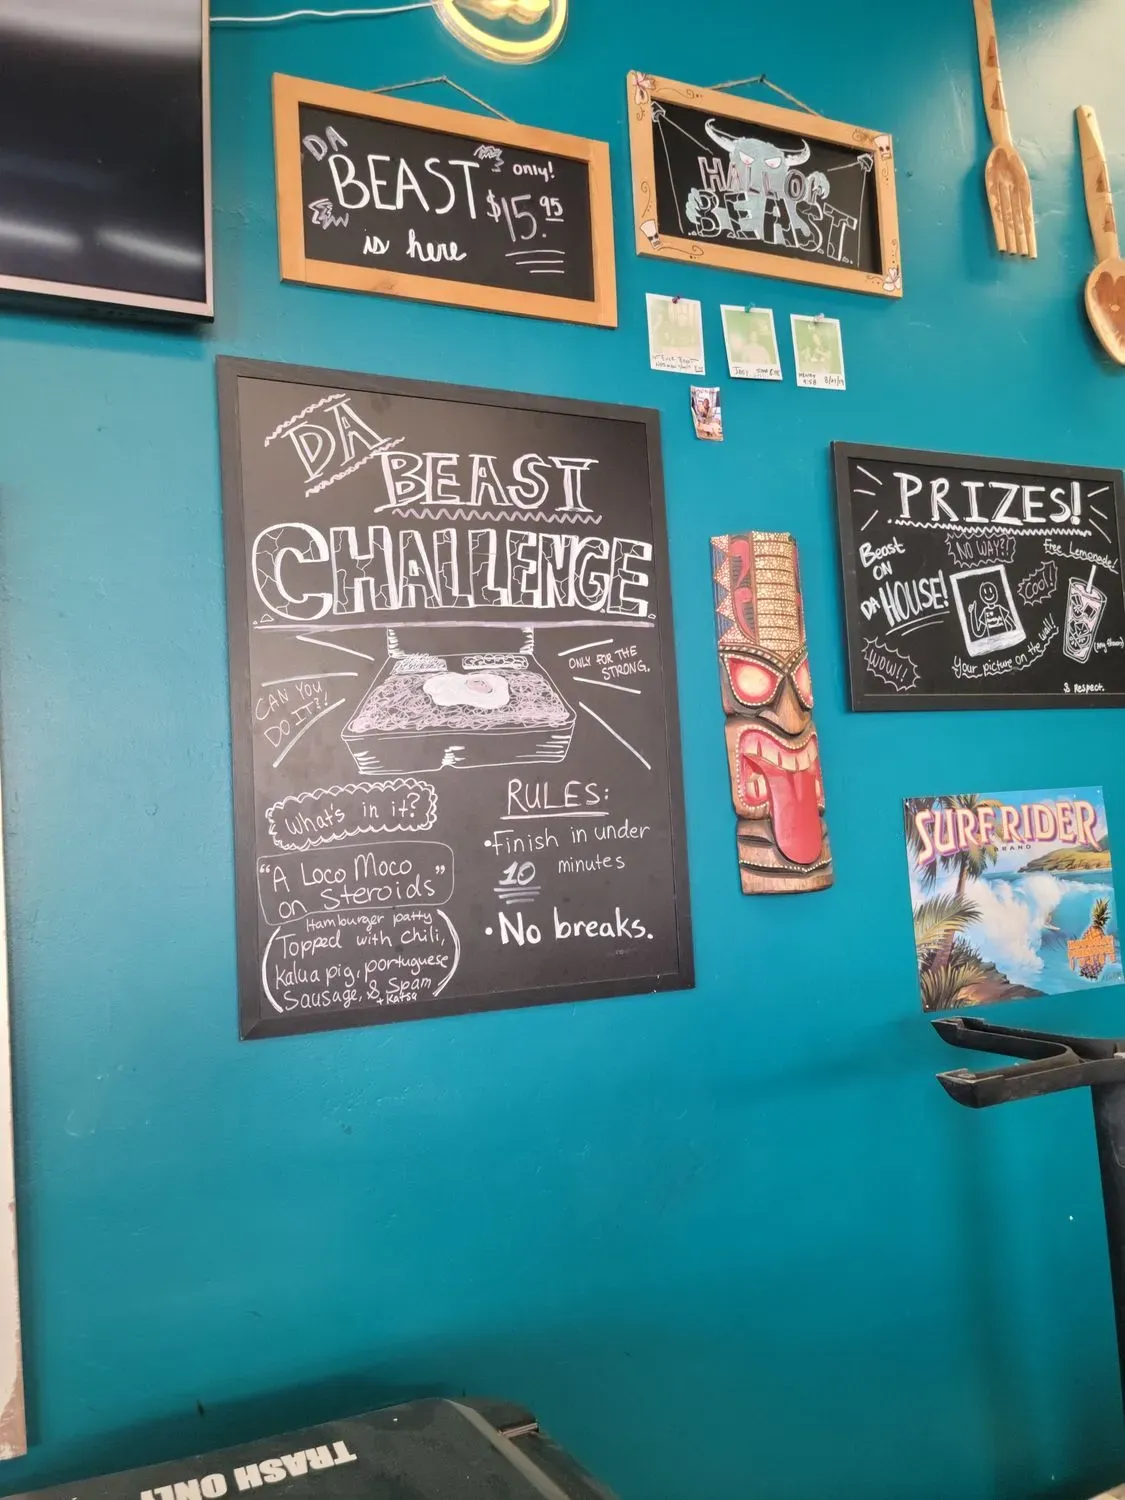 DA
BEAST
is here
only!
$15.95
HALL OF
BEAST
JOEY
8/01/19
DA
BEAST
CHALLENGE
CAN YOU
DO IT?!
ONLY FOR THE
STRONG.
What's in it?
"A Loco Moco
on Steroids"
(Hamburger patty
Topped with chili,
Kalua pig, portuguese
Sausage, & Spam
+ Katsu)
RULES:
•Finish in under
10 minutes
•No breaks.
PRIZES!
Beast
ON
DA HOUSE!
NO WAY?!
COOL!
Free Lemonade!
WOW!!
Your picture on the wall!
& respect.
SURF RIDER
BRAND
TRASH ONLY